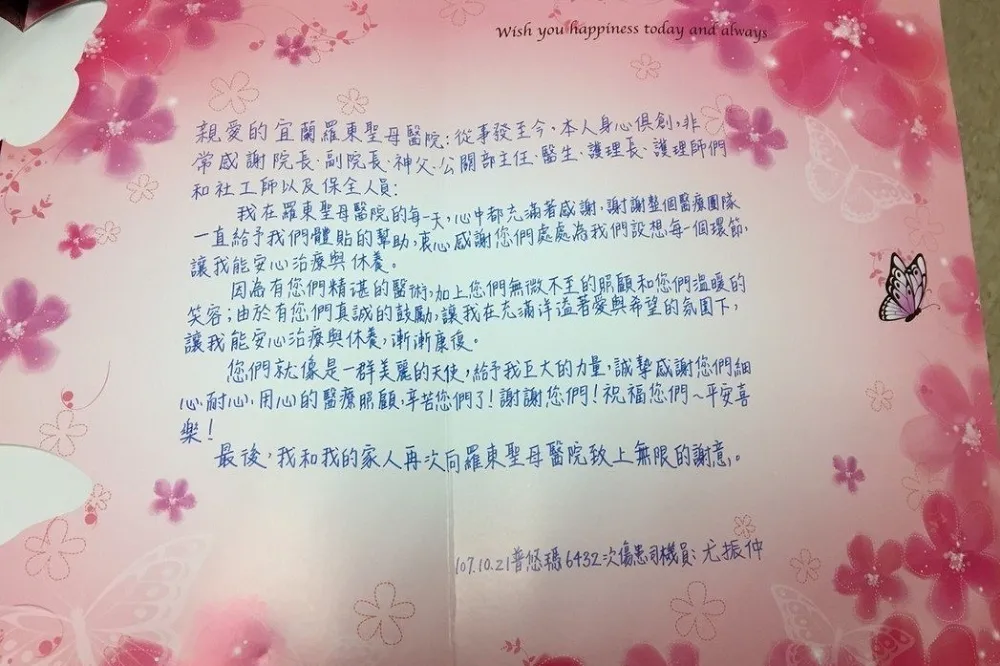 Wish you happiness today and always
親愛的宜蘭羅東聖母醫院：從事發至今，本人身心俱創，非
常感謝院長、副院長、神父、公關部主任、醫生、護理長、護理師們
和社工師以及保全人員：
我在羅東聖母醫院的每一天，心中都充滿著感謝，謝謝整個醫療團隊
一直給予我們體貼的幫助，衷心感謝您們處處為我們設想每一個環節，
讓我能安心治療與休養。
因為有您們精湛的醫術，加上您們無微不至的照顧和您們溫暖的
笑容；由於有您們真誠的鼓勵，讓我在充滿洋溢著愛與希望的氛圍下，
讓我能安心治療與休養，漸漸康復。
您們就像是一群美麗的天使，給予我巨大的力量，誠摯感謝您們細
心、耐心、用心的醫療照顧，辛苦您們了！謝謝您們！祝福您們～平安喜
樂！
最後，我和我的家人再次向羅東聖母醫院致上無限的謝意。
107.10.21普悠瑪6432次傷患司機員：尤振仲